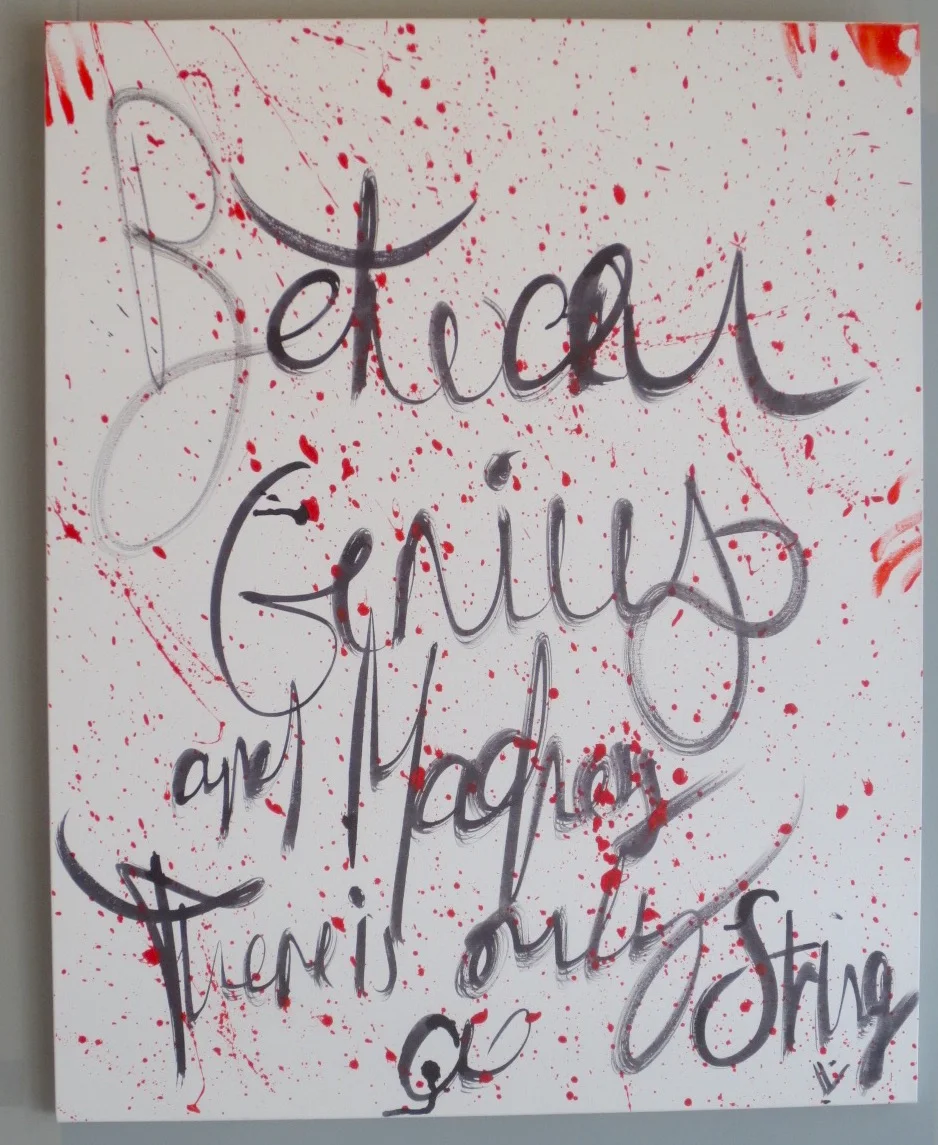 Between
Genius
and Madness
There is only String
a